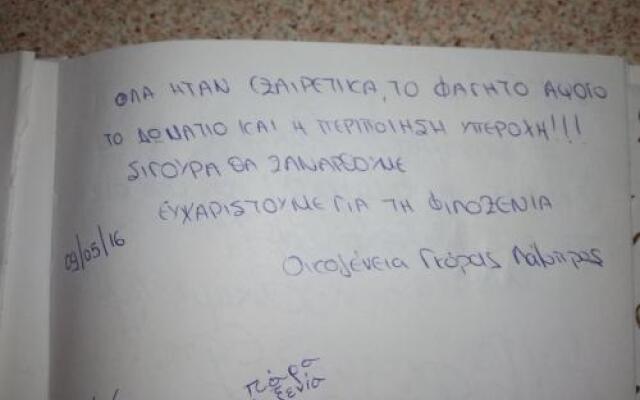 ΟΛΑ ΗΤΑΝ ΕΞΑΙΡΕΤΙΚΑ, ΤΟ ΦΑΓΗΤΟ ΑΨΟΓΟ
ΤΟ ΔΩΜΑΤΙΟ ΚΑΙ Η ΠΕΡΙΠΟΙΗΣΗ ΥΠΕΡΟΧΗ!!!
ΣΙΓΟΥΡΑ ΘΑ ΞΑΝΑΡΘΟΥΜΕ
ΕΥΧΑΡΙΣΤΟΥΜΕ ΓΙΑ ΤΗ ΦΙΛΟΞΕΝΙΑ
09/05/16
Οικογένεια Γκόρας Λάμπρος